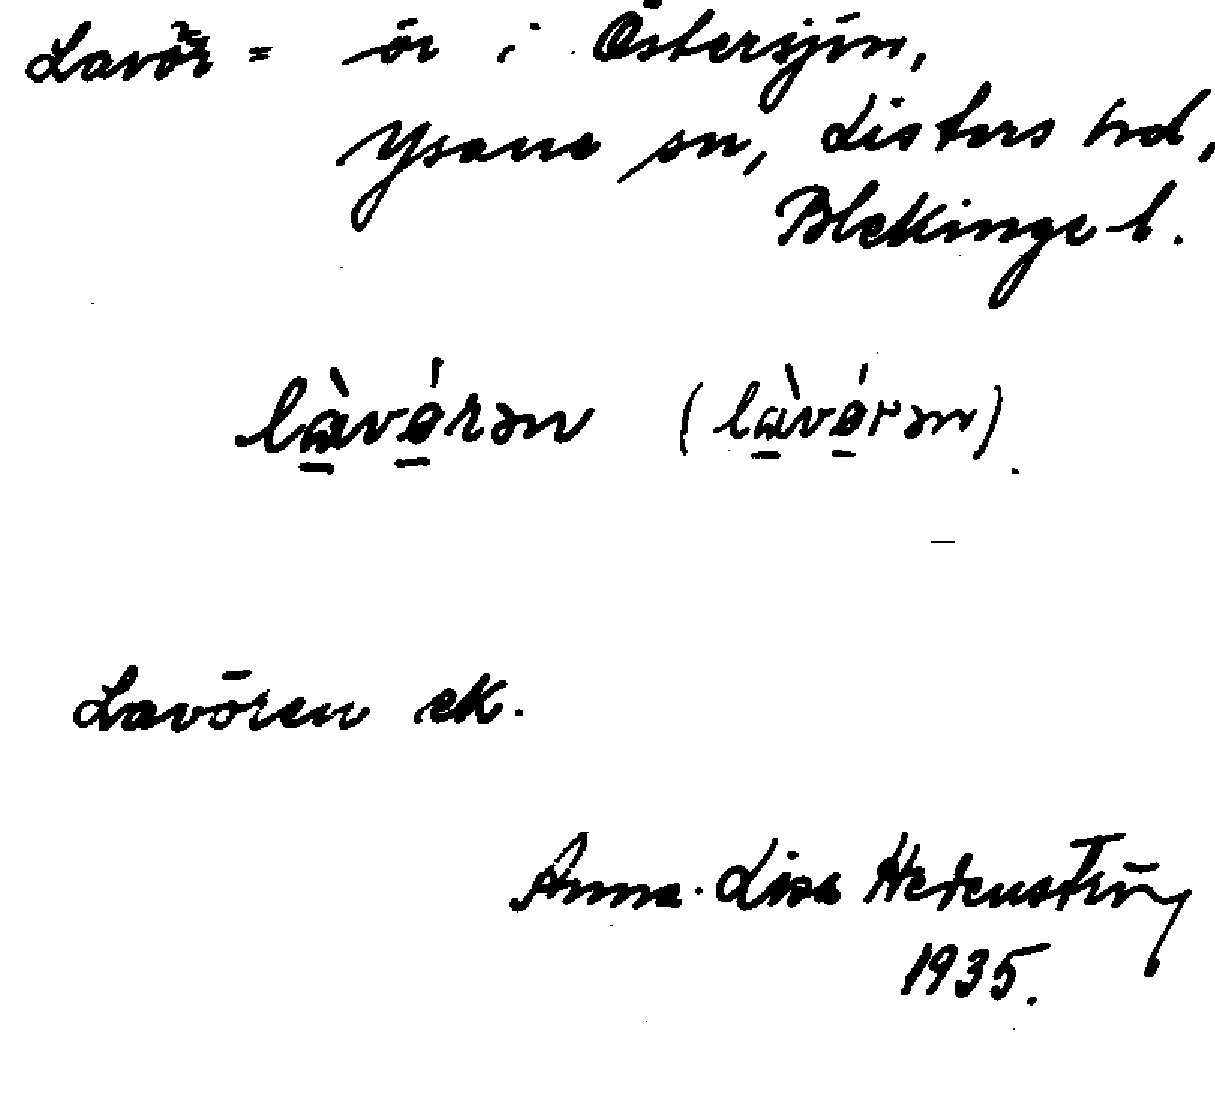 Lavör = ör i Östersjön,
Ysane sn, Listers hrd,
Blekinge l.
làvǿrən (làvǿrən).
Lavören ek.
Anna-Lisa
1935.